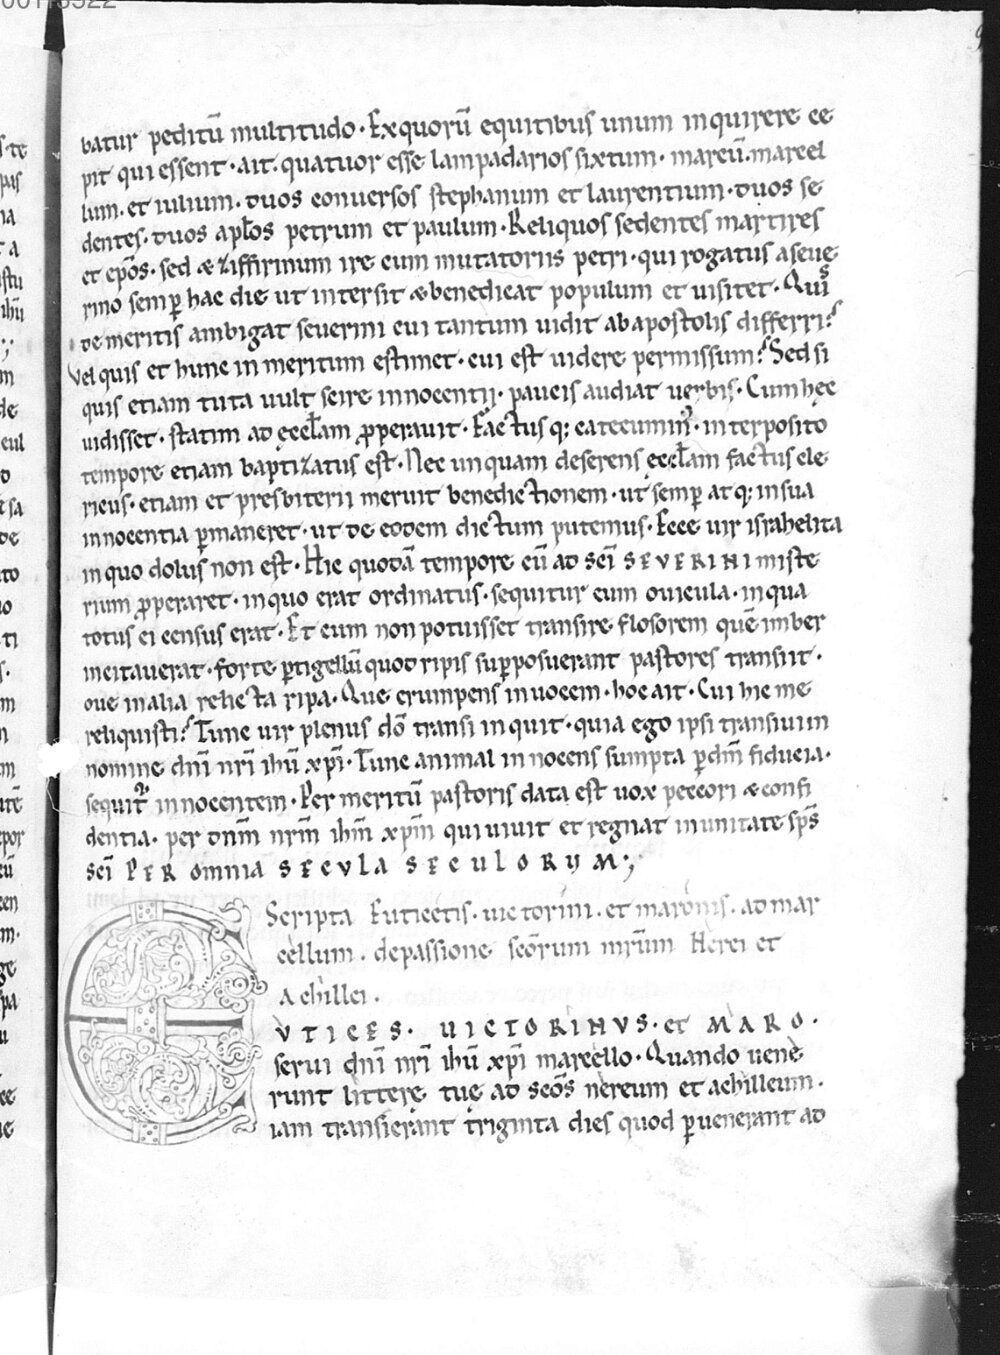 batur peditū multitudo · Exquorū equitibus unum inquirere ce
pit qui essent · ait · quatuor esse lampadarios sixtum · marcū · marcel
lum · et iulium · duos conuersos stephanum et laurentium · duos se
dentes · duos apłos petrum et paulum · Reliquos sedentes martires
et ep̄os · sed & ziffirinum ire cum mutatoriis petri · qui rogatus aseue
rino semꝑ hac die ut intersit & benedicat populum et uisitet · Quis
de meritis ambigat seuerini cui tantum uidit abapostolis differri?
Vel quis et hunc in meritum estimet · cui est uidere permissum? Sed si
quis etiam tuta uult scire innocentij · paucis audiat uerbis · Cum hęc
uidisset · statim ad ęccłam ꝓperauit · Factus q; catecumin᾿ · interposito
tempore etiam baptizatus est · Nec unquam deserens ęccłam factus cle
ricus · etiam et presbiterii meruit benedictionem · ut semꝑ atq; insua
innocentia ꝑmaneret · ut de eodem dictum putemus · Ecce uir israhelita
inquo dolus non est · Hic quodā tempore cū ad sc̄i SEVERINI miste
rium ꝓperaret · inquo erat ordinatus · sequitur eum ouicula · inqua
totus ei census erat · Et cum non potuisset transire flosorem quē imber
incitauerat · forte ꝑtigellū quod ripis supposuerant pastores transiit ·
oue inalia relicta ripa · Que erumpens inuocem · hoc ait · Cui hic me
reliquisti? Tunc uir plenus dō transi inquit · quia ego ipsi transiui in
nomine dn̄i nr̄i ihū xp̄i · Tunc animal innocens sumpta ꝑdn̄m fiducia ·
sequit᾿ innocentem · Per meritū pastoris data est uox peccori & confi
dentia · per dn̄m nr̄m ihm̄ xp̄m qui uiuit et regnat inunitate sp̄s
sc̄i PER omnia SECVLA SECULORUM ;
Scripta Euticetis · uictorini · et maronis · ad mar
cellum · depassione sc̄orum mr̄um Nerei et
Achillei ·
EVTICES · UICTORINVS · et MARO ·
serui dn̄i nr̄i ihū xp̄i marcello · Quando uene
runt litterę tuę ad sc̄os nereum et achilleum ·
iam transierant triginta dies quod ꝑuenerant ad